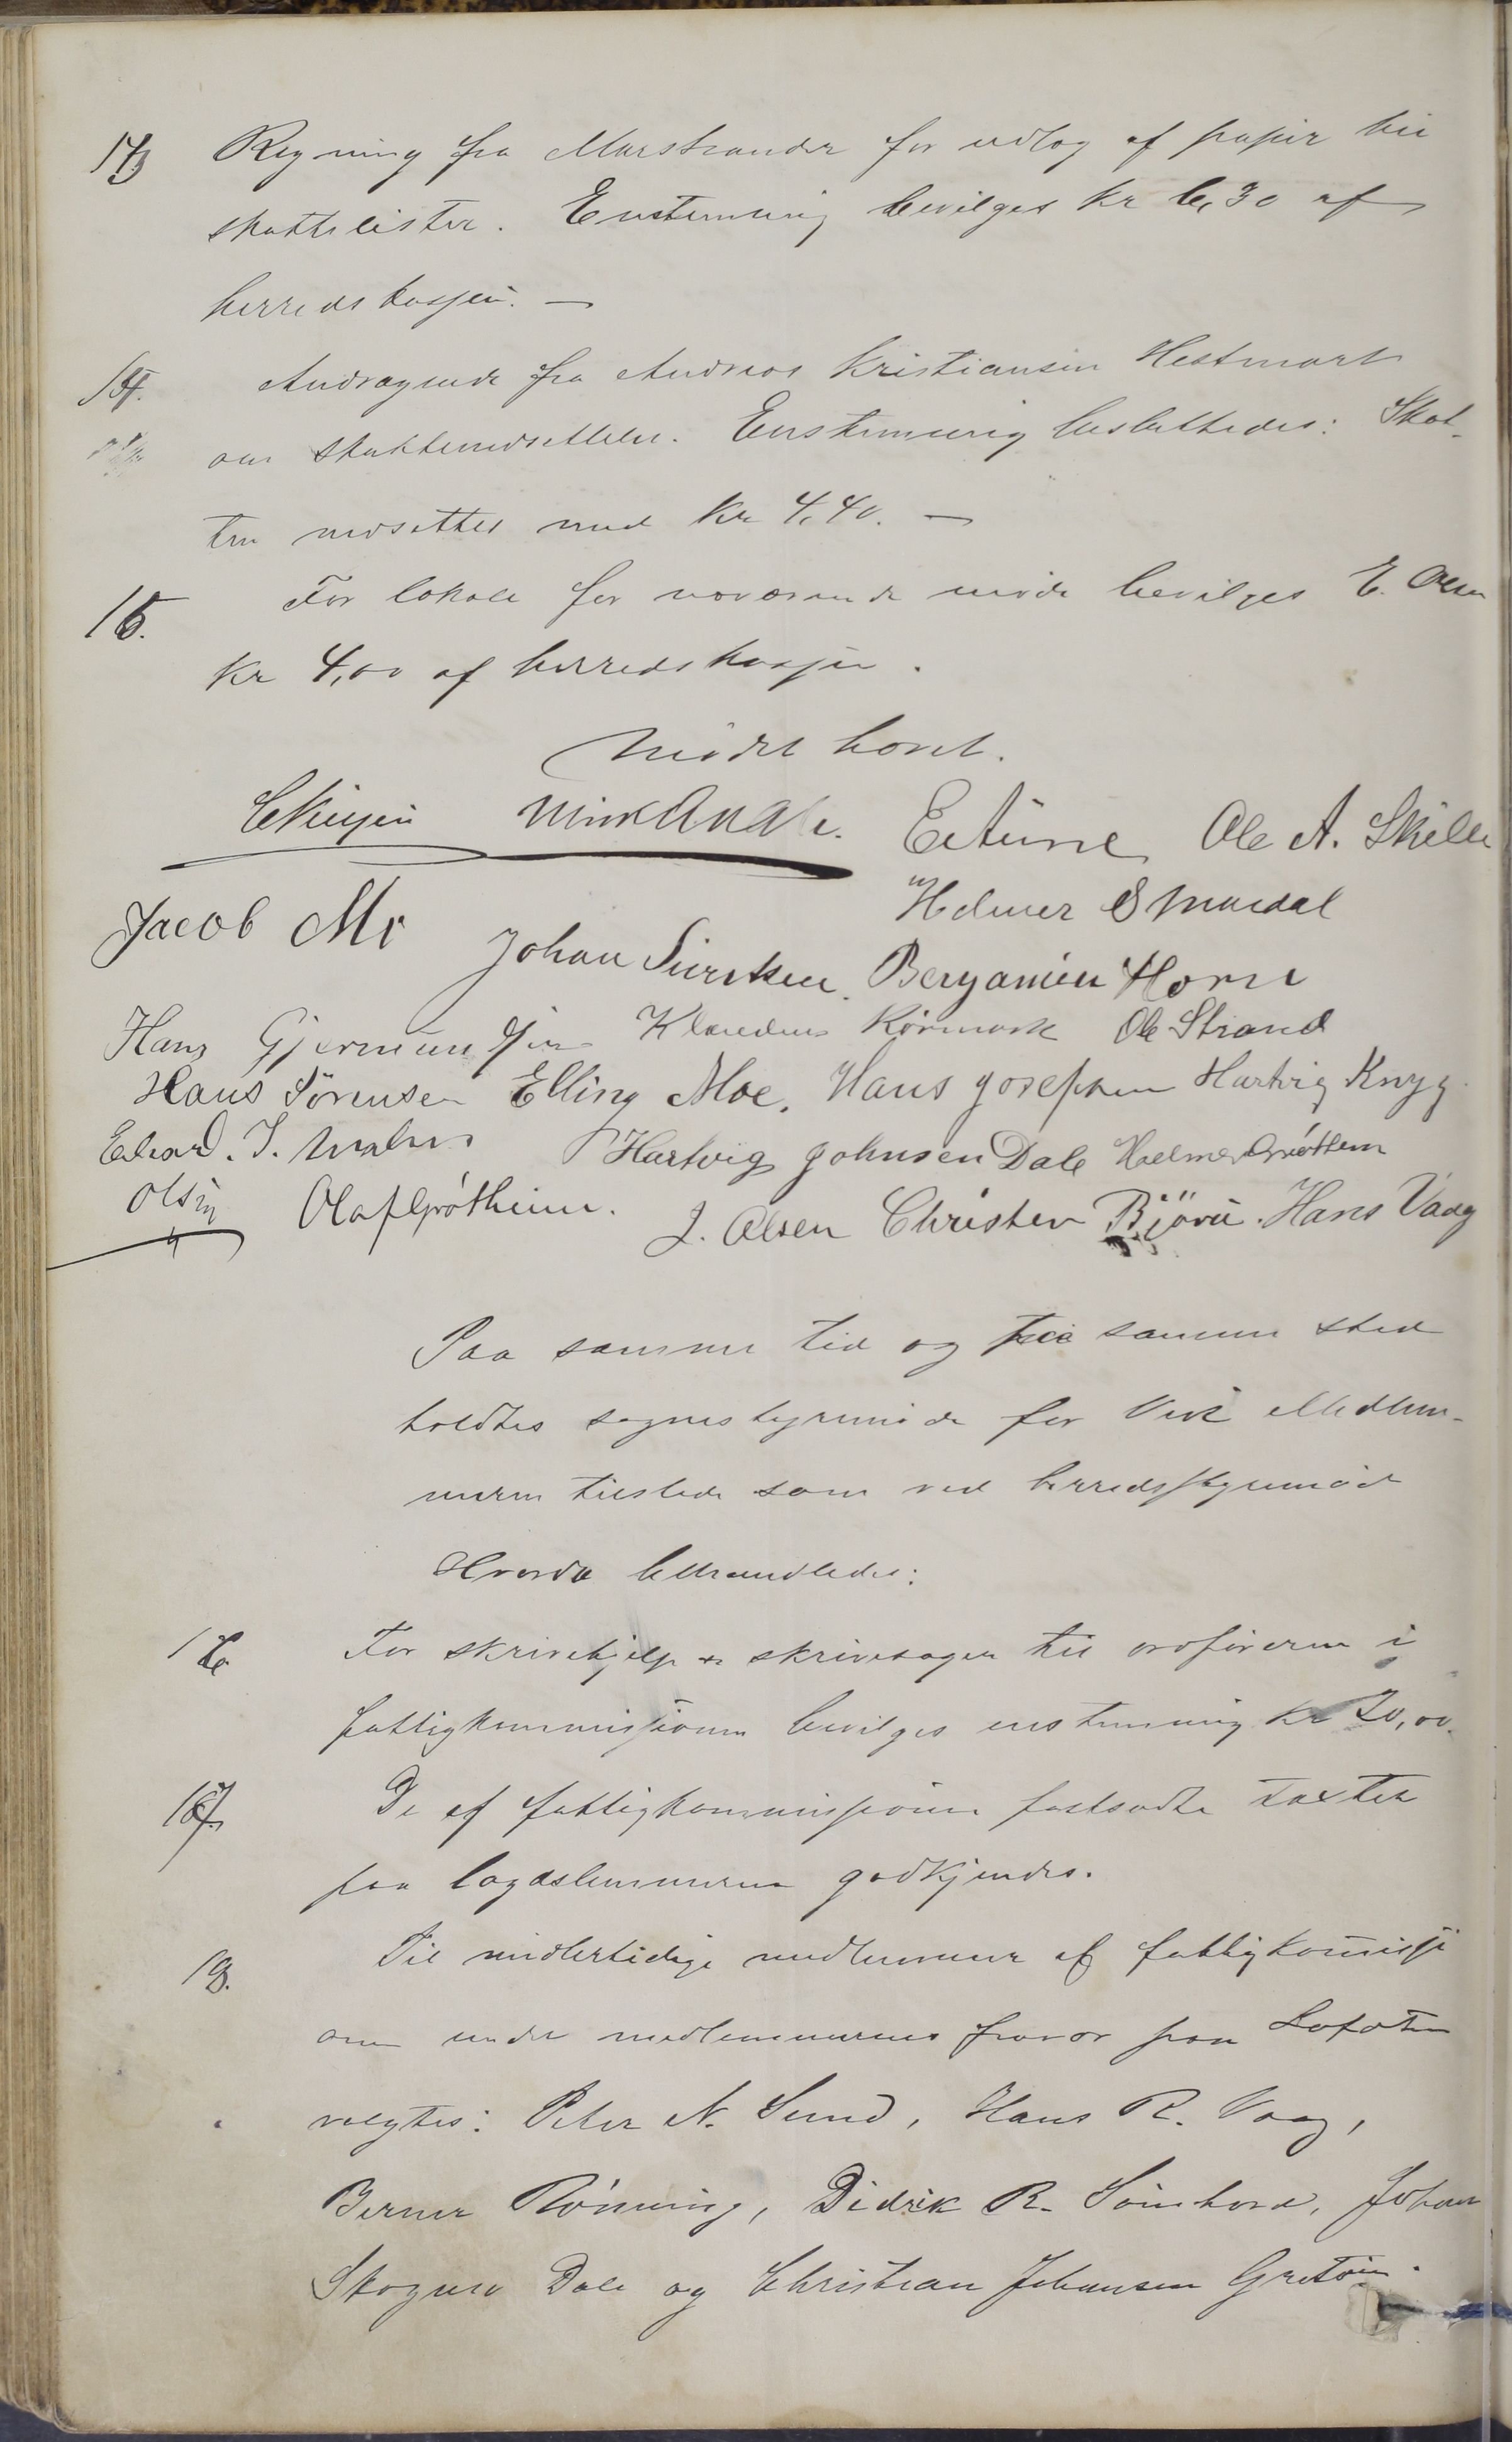 13 Regning fra Marstrander for udlæg af papir til
skattelister. Enstemmig bevilges kr 6,30 af
herredskassen. —
14. Andragende fra Andreas Kristiansen Hestmark
om skattenedsettelse. Enstemmig besluttedes: Skat-
ten nedsettes med kr 4,40. —
15. For lokale for nærværende møde bevilges E. Olsen
kr 4,00 af herredskassen.
Mødet hævet.
Ole A. Skille
Jacob Mo Helmer S Mardal
Johan Benjamin Horn
Hans Gjermundsen Klaudius Ole Strand
Hans Sörensen Elling Moe. Hans Josephsen Hartvig Knyg
Edvard. J. Hartvig Johnsen Dale Helmer Gróttem
Olsen Olaf Grótheim. J. Olsen Christen Hans Vaag
Paa samme tid og paa samme sted
holdtes sognestyremøde for Vik Medlem-
merne tilstede som ved herredsstyremøde
Hvorda behandledes:
16 For skrivehjelp & skrivesager til ordføreren i
fattigkommissionen bevilges enstemmig kr 20,00.
17. De af fattigkommissionen fastsatte taxter
paa lægdslemmerne godkjendes.
18. Til midlertidige medlemmer af fattigkommissi
onen under medlemmernes fravær paa Lofoten
valgtes: Peter N. Sund, Hans R. Vaag,
Berner Rønning, Didrik R. Sömhovd, Johan
Skogmo Dale og Christian Johansen Gretöin.